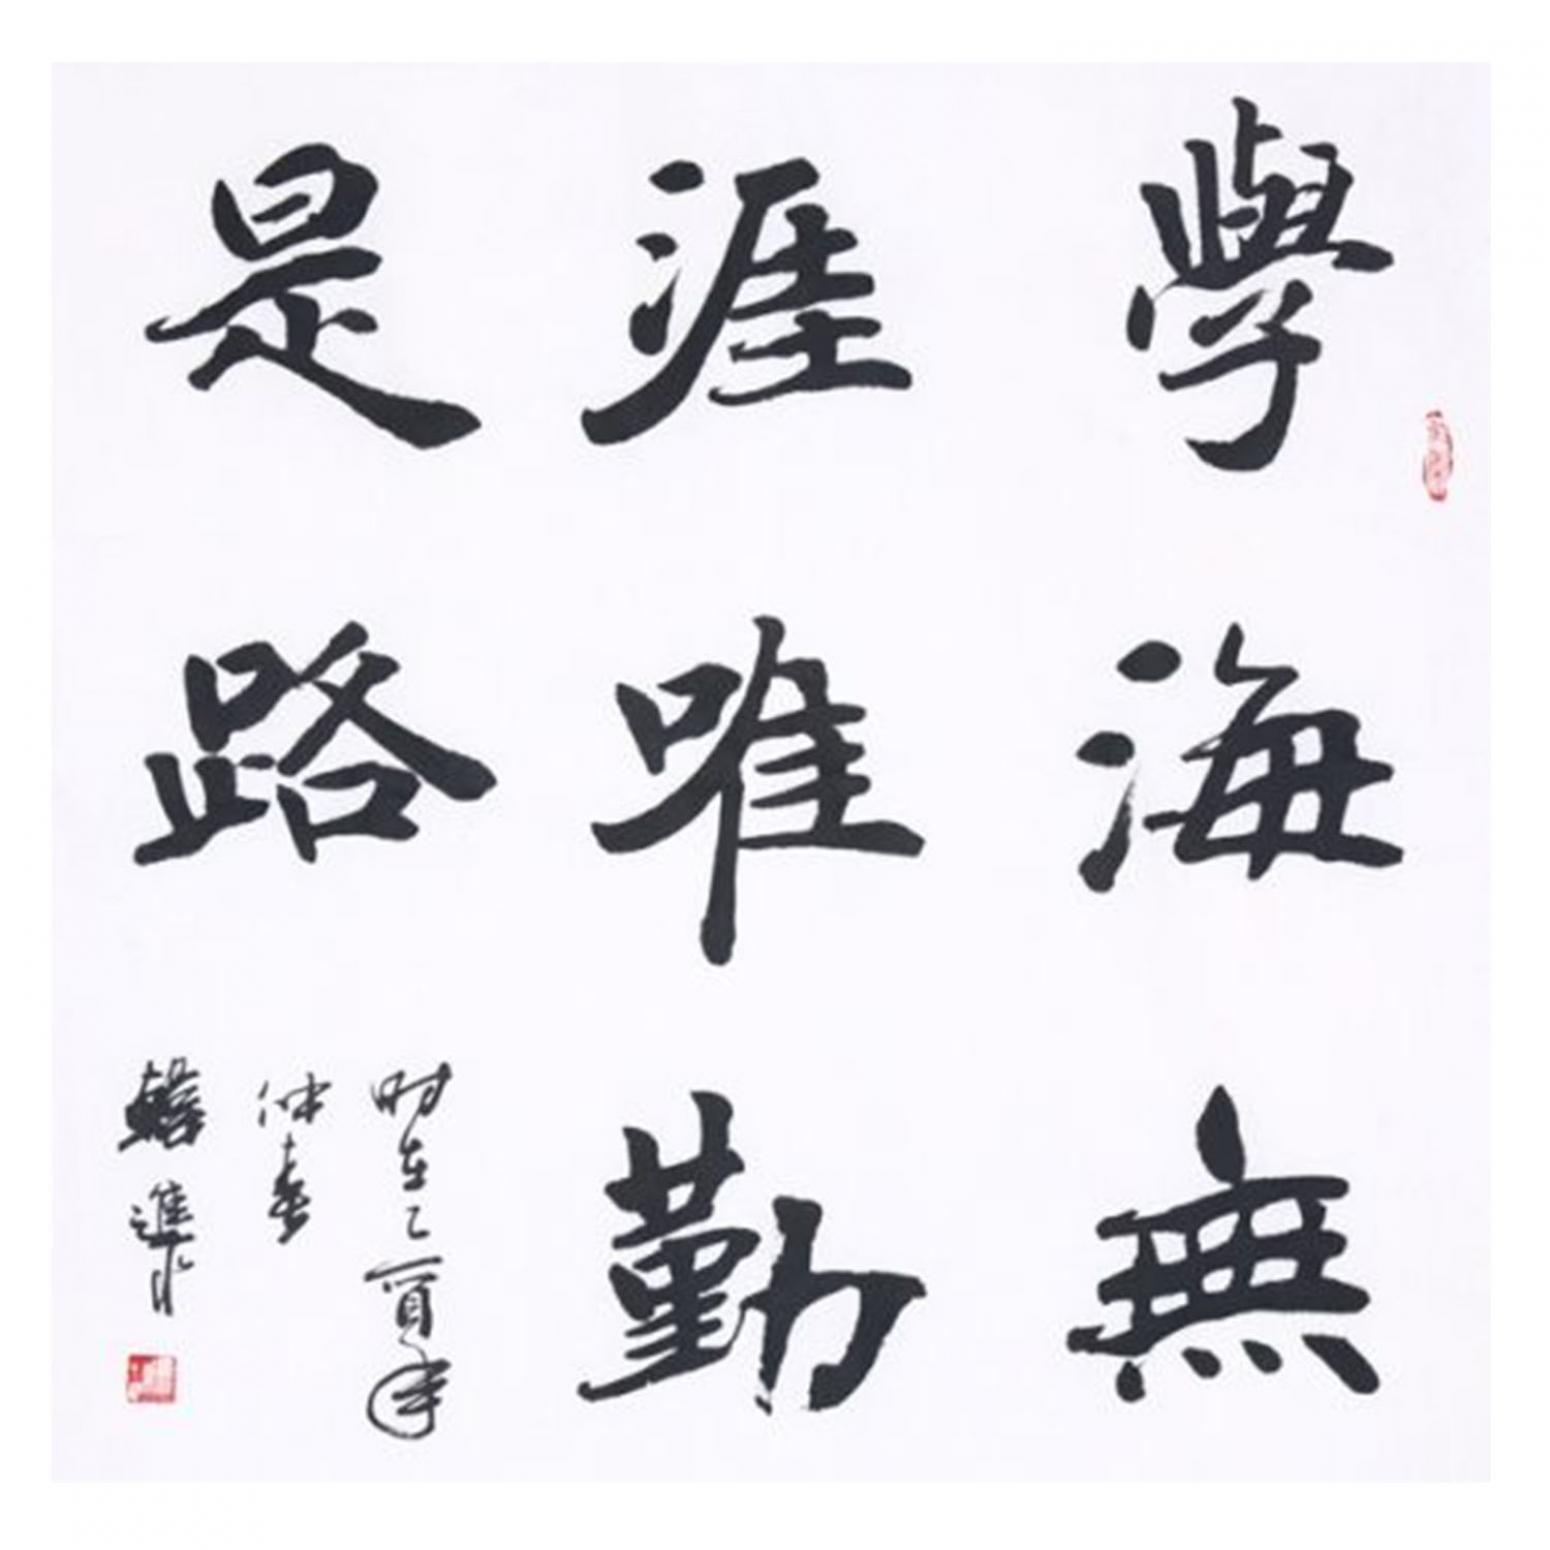 學海無
涯唯勤
是路
时在乙酉年
仲春